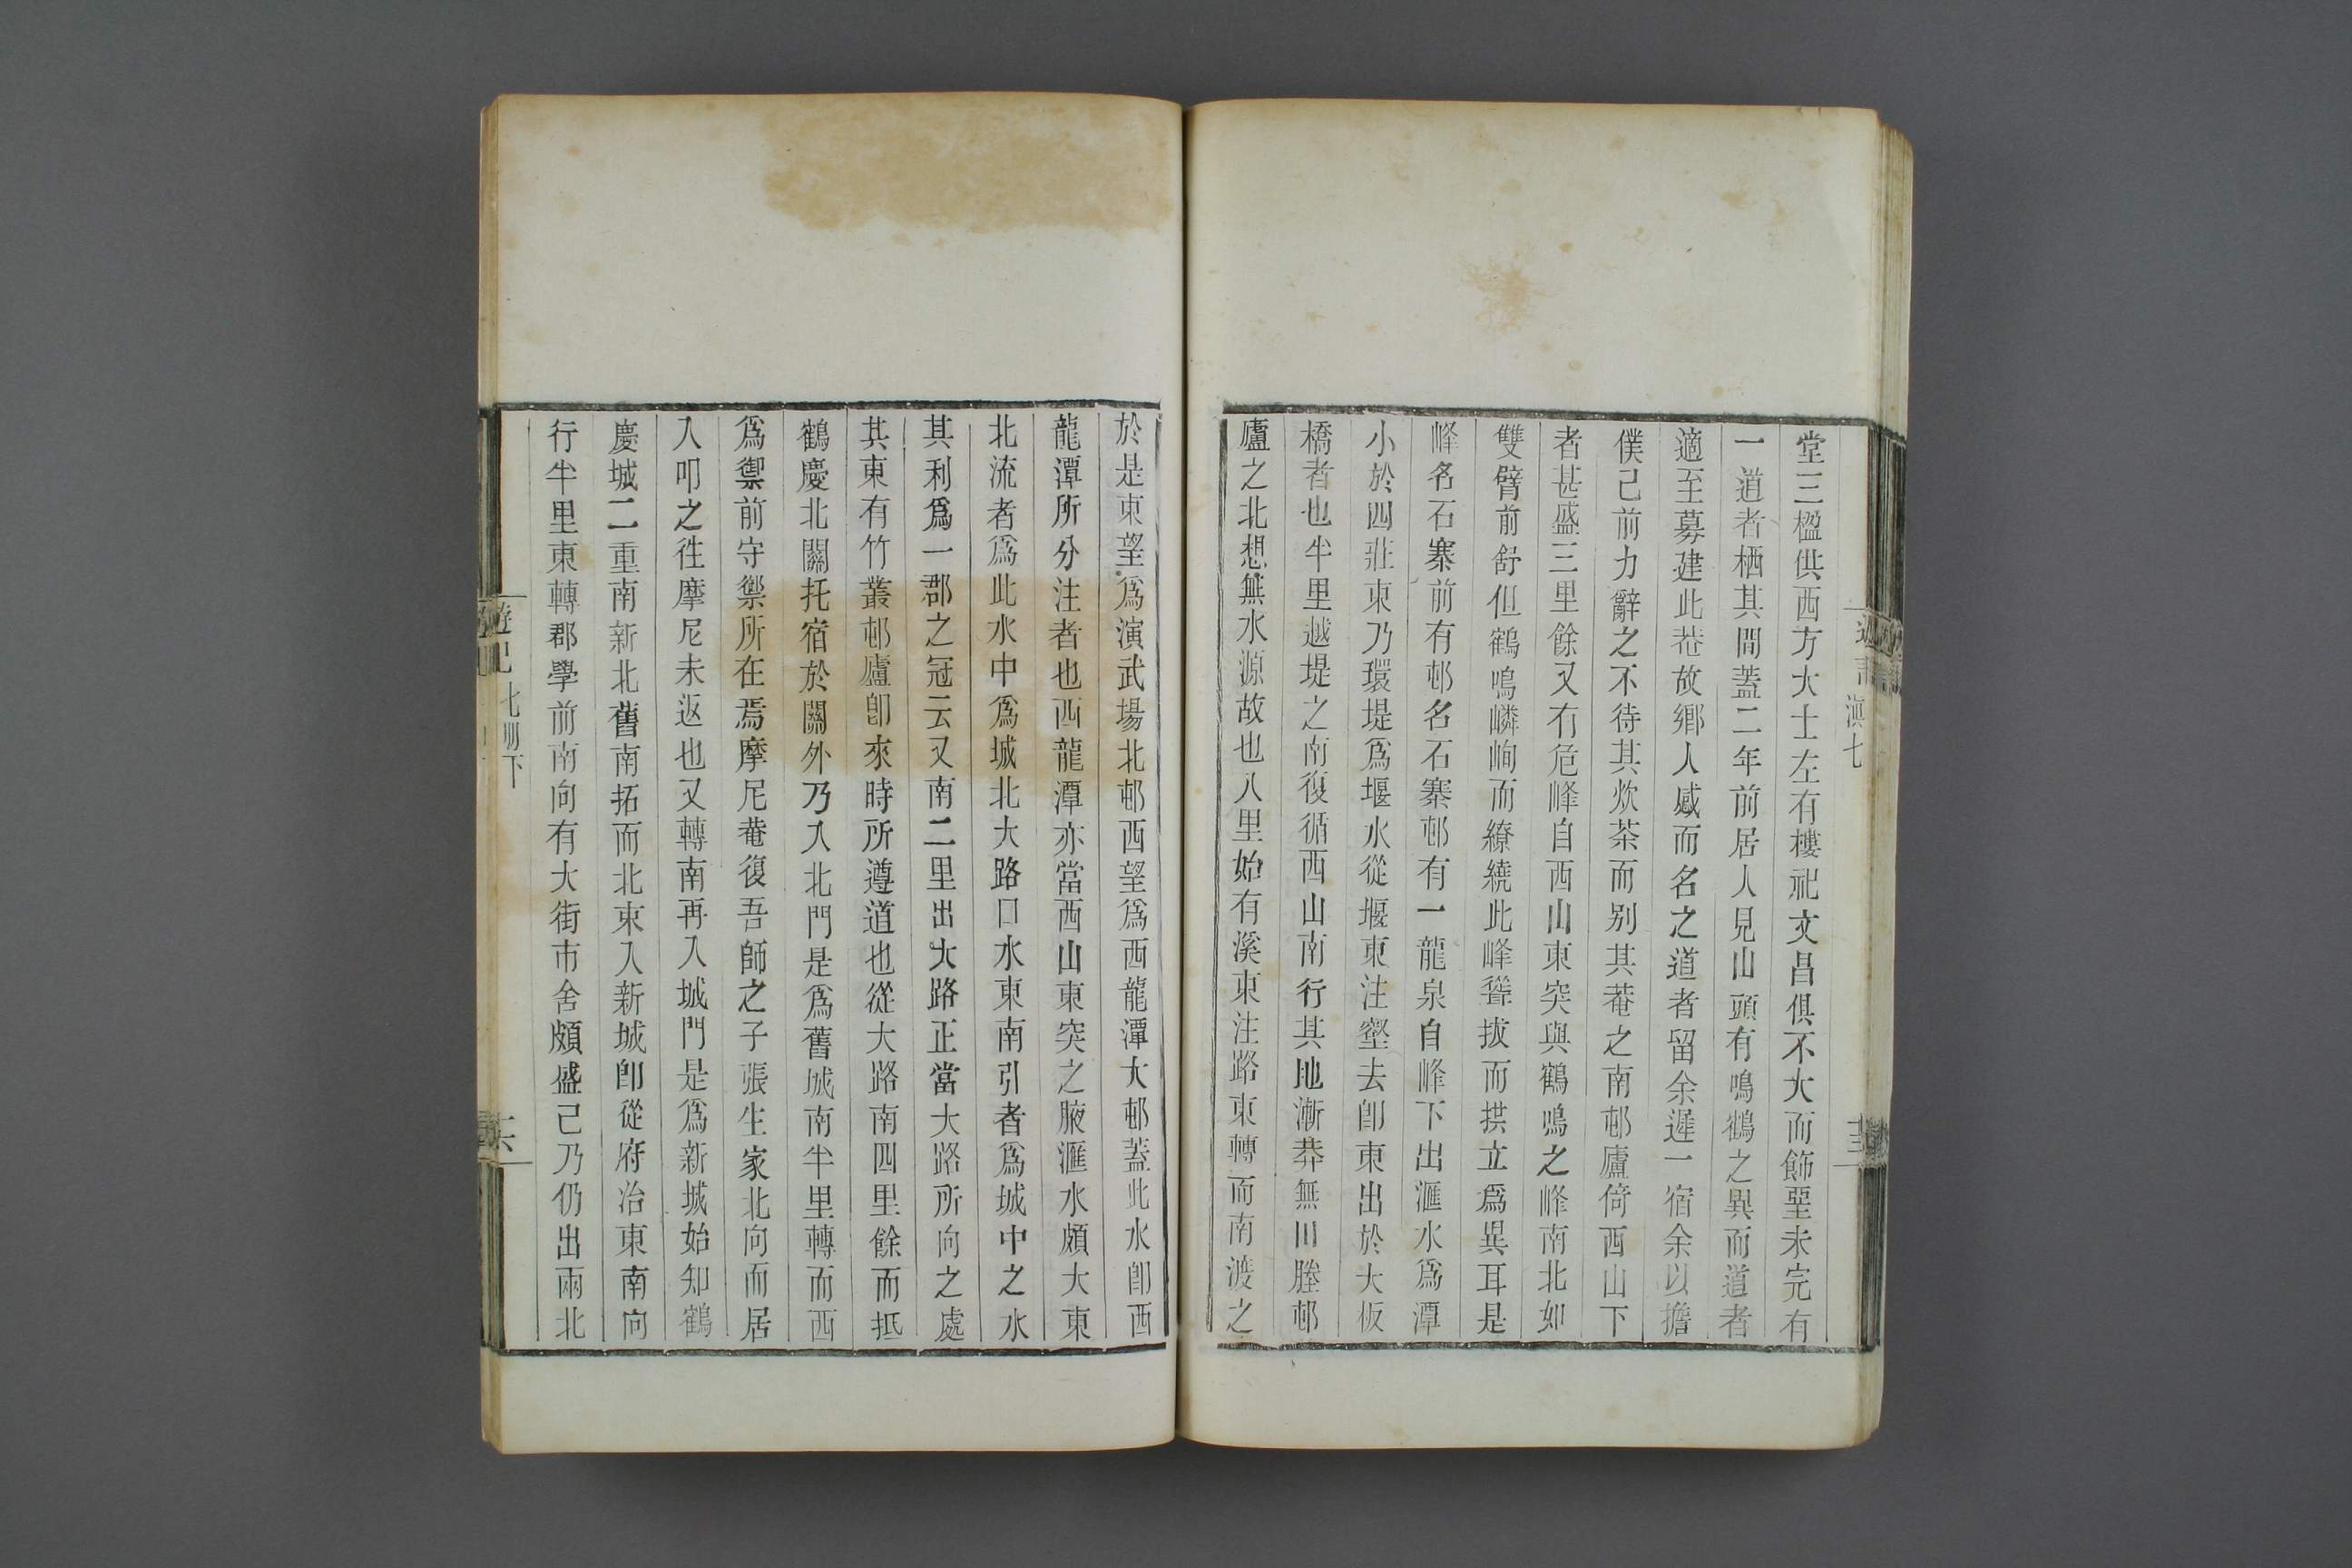 滇七
堂三楹供西方大士左有樓祀文昌俱不大而飾堊未完有
一道者栖其間蓋二年前居人見山頭有鳴鶴之異而道者
適至募建此菴故鄉人感而名之道者留余遲一宿余以擔
僕已前力辭之不待其炊茶而别其菴之南邨廬倚西山下
者甚盛三里餘又有危峰自西山東突與鶴鳴之峰南北如
雙臂前舒但鶴鳴嶙峋而繚繞此峰聳拔而拱立爲異耳是
峰名石寨前有邨名石寨邨有一龍泉自峰下出滙水爲潭
小於四莊東乃環堤爲堰水從堰東注壑去卽東出於大板
橋者也半里越堤之南復循西山南行其地漸莽無川塍邨
廬之北想無水源故也八里始有溪東注路東轉而南渡之
於是東望爲演武場北邨西望爲西龍潭大邨蓋此水卽西
龍潭所分注者也西龍潭亦當西山東突之腋滙水頗大東
北流者爲此水中爲城北大路口水東南引者爲城中之水
其利爲一郡之冠云又南二里出大路正當大路所向之處
其東有竹叢邨廬卽來時所遵道也從大路南四里餘而抵
鶴慶北關托宿於關外乃入北門是爲舊城南半里轉而西
爲禦前守禦所在焉摩尼菴復吾師之子張生家北向而居
入叩之徃摩尼未返也又轉南再入城門是爲新城始知鶴
慶城二重南新北舊南拓而北束入新城卽從府治東南向
行半里東轉郡學前南向有大街市舍頗盛已乃仍出兩北
遊記